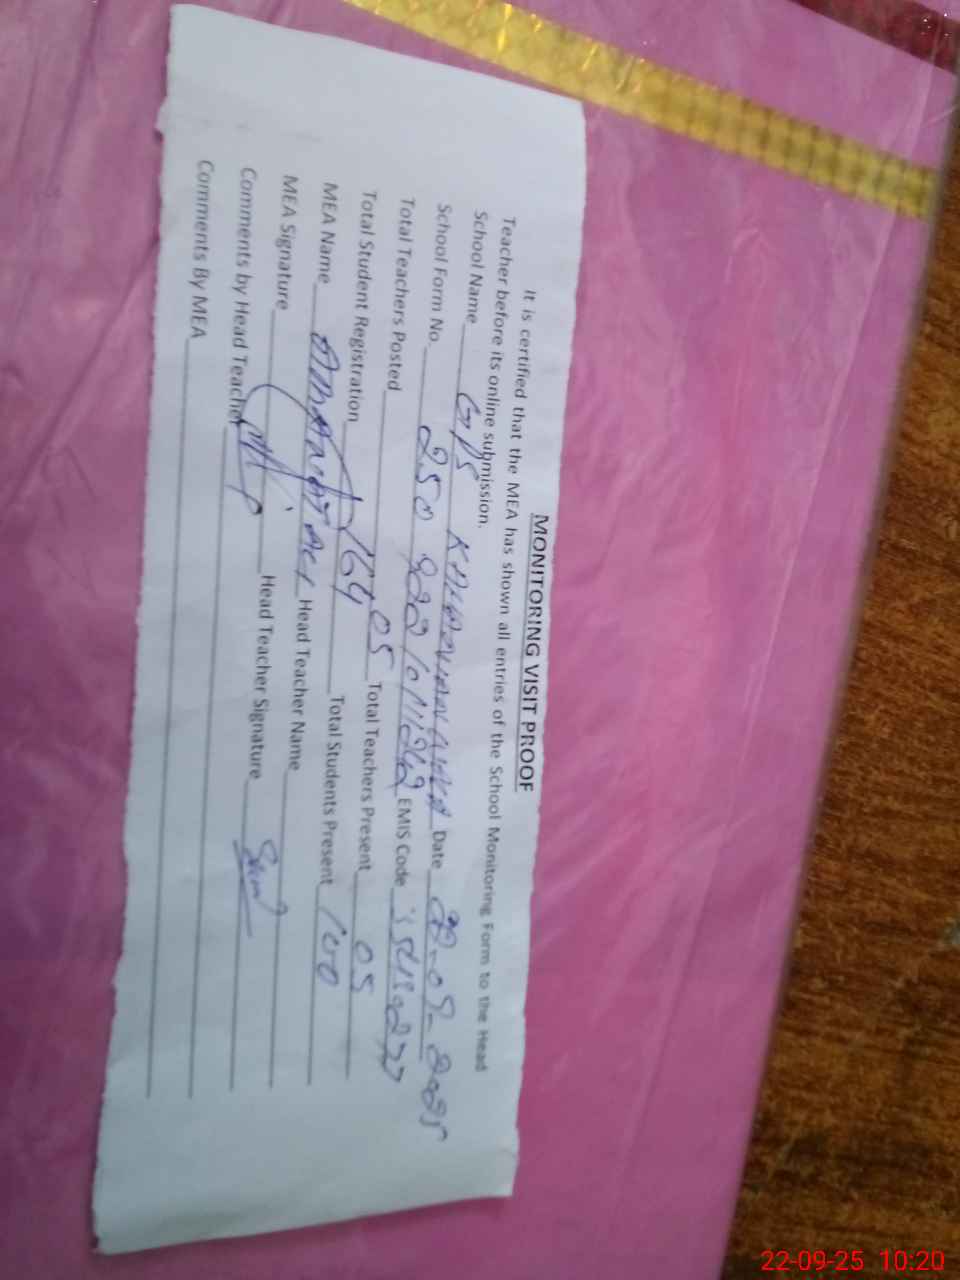 MONITORING VISIT PROOF
It is certified that the MEA has shown all entries of the School Monitoring Form to the Head
Teacher before its online submission.
School Name GPS Date 22-09-2025
School Form No. EMIS Code
Total Teachers Posted 05 Total Teachers Present 05
Total Student Registration 164 Total Students Present 100
MEA Name Head Teacher Name
MEA Signature Head Teacher Signature
Comments by Head Teacher
Comments By MEA
22-09-25 10:20